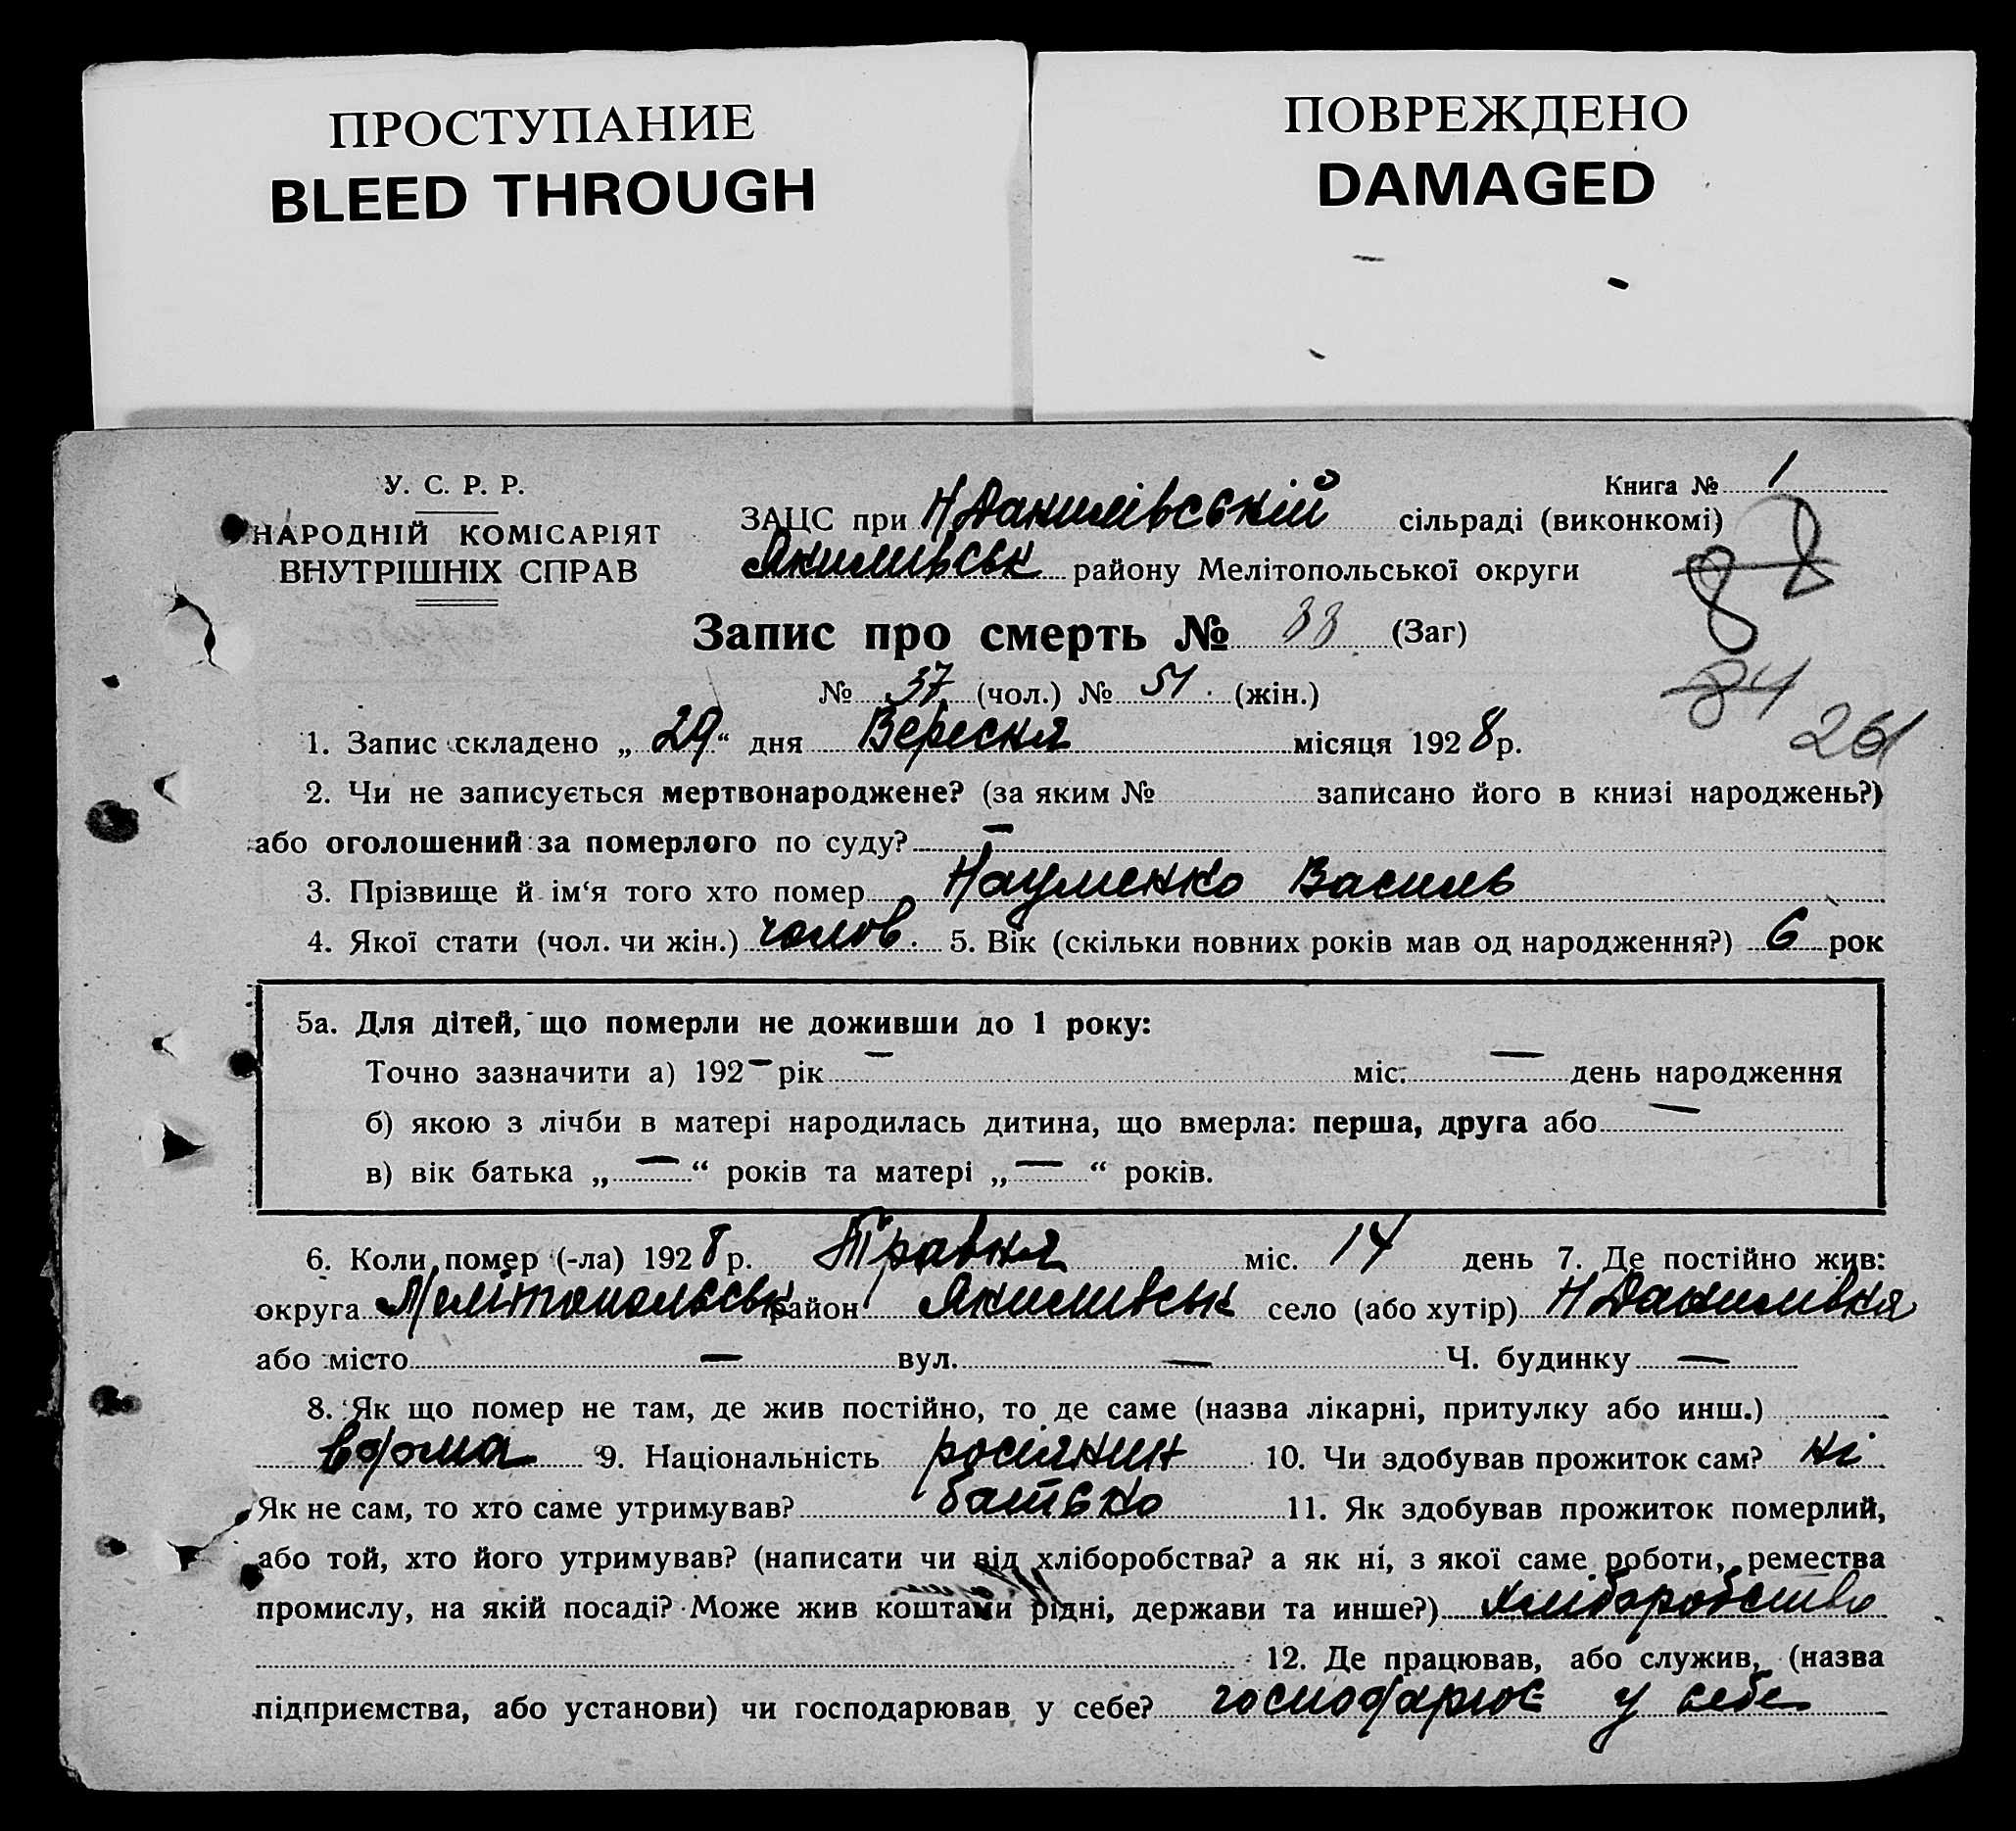 ПРОСТУПАНИЕ
BLEED THROUGH
ПОВРЕЖДЕНО
DAMAGED
У. С. Р. Р.
НАРОДНІЙ КОМІСАРІЯТ
ВНУТРІШНІХ СПРАВ
Книга № 1
ЗАЦС при НДанилівській сільраді (виконкомі)
Якимівськ району Мелітопольської округи
Запис про смерть № 88 (Заг)
№ 37 (чол.) № 51 (жін.)
84
261
1. Запис складено „29“ дня Вересня місяця 1928 р.
2. Чи не записується мертвонароджене? (за яким № записано його в книзі народжень?)
або оголошений за померлого по суду? —
3. Прізвище й ім‘я того хто помер Науменко Василь
4. Якої стати (чол. чи жін.) чолов. 5. Вік (скільки повних років мав од народження?) 6 рок
5а. Для дітей, що померли не доживши до 1 року:
Точно зазначити а) 192— рік — міс. — день народження
б) якою з лічби в матері народилась дитина, що вмерла: перша, друга або —
в) вік батька „—“ років та матері „—“ років.
6. Коли помер (-ла) 1928 р. Травня міс. 14 день 7. Де постійно жив:
округа Мелітопольськ район Якимівськ село (або хутір) НДанилівка
або місто — вул. — Ч. будинку —
8. Як що помер не там, де жив постійно, то де саме (назва лікарні, притулку або инш.)
вдома 9. Національність росіянин 10. Чи здобував прожиток сам? ні
Як не сам, то хто саме утримував? батько 11. Як здобував прожиток померлий,
або той, хто його утримував? (написати чи від хліборобства? а як ні, з якої саме роботи, ремества
промислу, на якій посаді? Може жив коштами рідні, держави та инше?) хліборобство
12. Де працював, або служив, (назва
підприємства, або установи) чи господарював у себе? господарює у себе